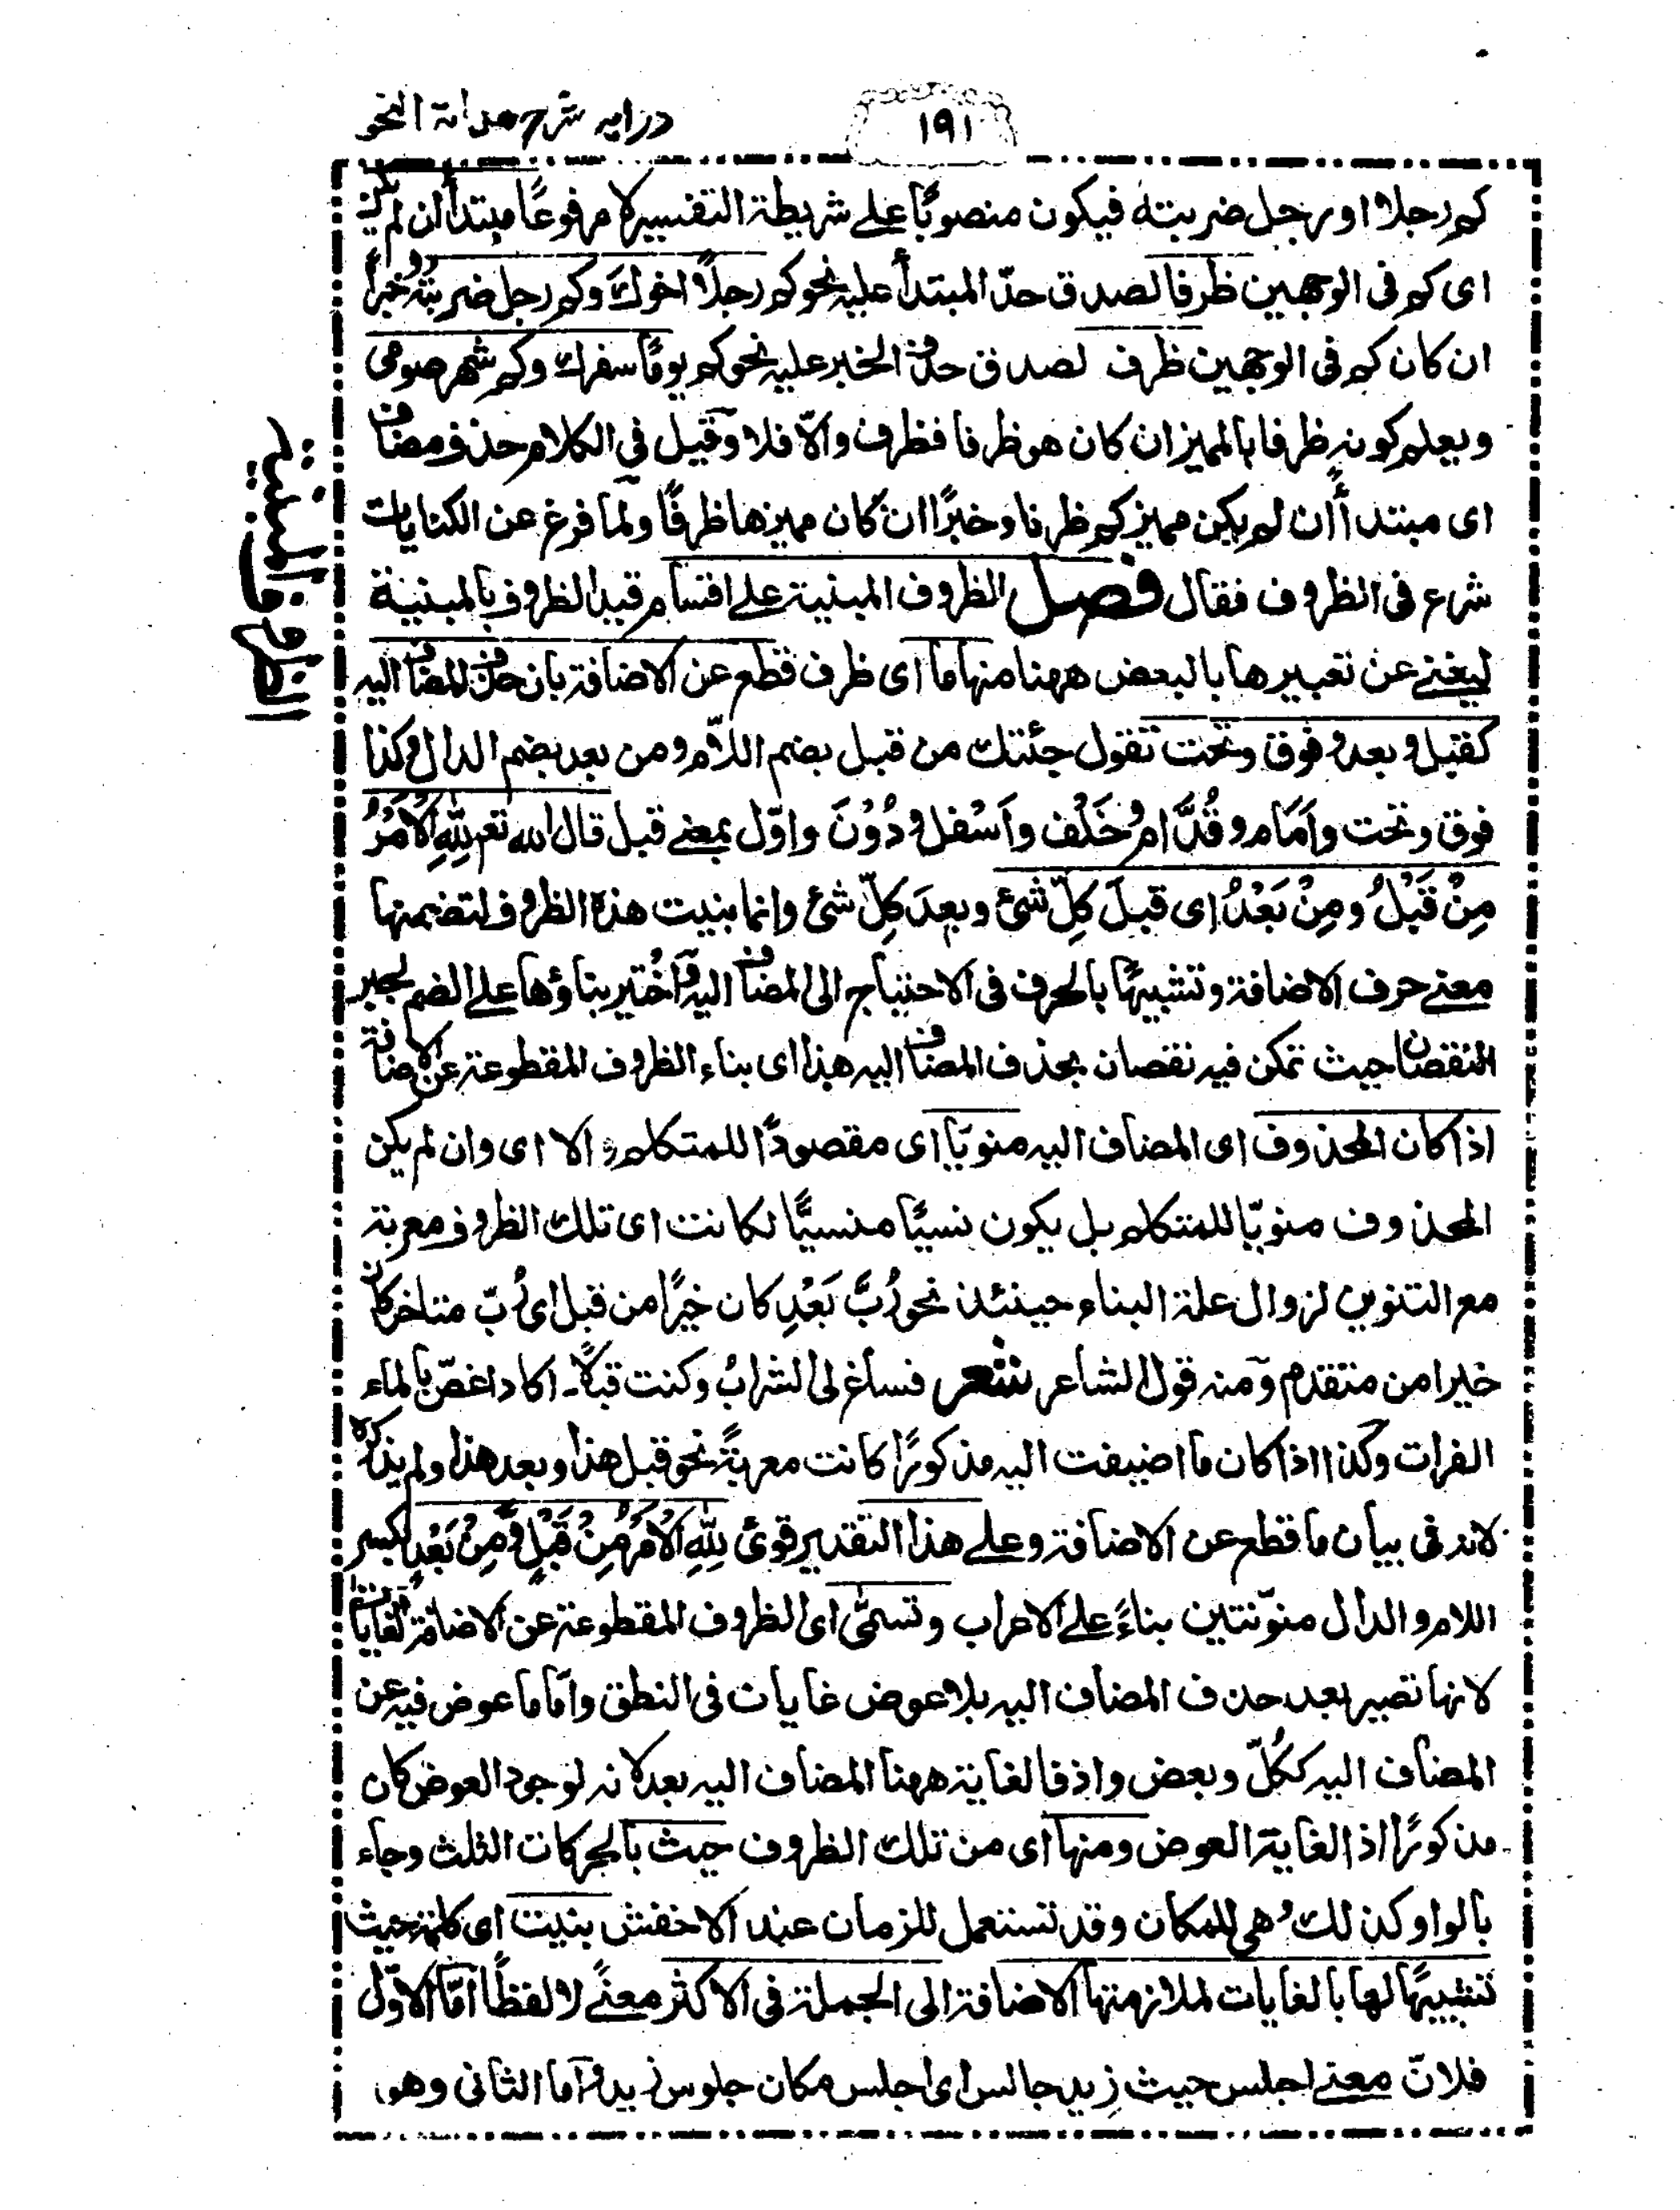 ١٩١
درايه شرح هداية النحو
كم رجلا او رجل ضربته فيكون منصوبًا على شريطة التفسير لا مرفوعًا مبتدأ ان لم يكن
اى كم فى الوجهين ظرفا لصدق حدّ المبتدأ عليه نحو كم رجلًا اخوك وكم رجل ضربتُه وخبرًا
ان كان كم فى الوجهين ظرف لصدق حدّ الخبر عليه نحو كم يومًا سفرك وكم شهر صومى
ويعلم كونه ظرفا بالمميز ان كان هو ظرفا فظرف والّا فلا وقيل فى الكلام حذف مضاف
اى مبتدأً ان لم يكن مميز كم ظرفا وخبرًا ان كان مميزها ظرفًا ولما فرغ عن الكنايات
شرع فى الظروف فقال فصل الظروف المبنية على اقسام قيد الظروف بالمبنية
ليغنى عن تعبيرها بالبعض ههنا منها ما اى ظرف قطع عن الاضافة بان حذف المضاف اليه
كقبل وبعد وفوق وتحت تقول جئتك من قبل بضم اللام ومن بعد بضم الدال وكذا
فوق وتحت واَمَام وقُدَّام وخَلْف واَسْفل ودُوْنَ واوّل بمعنى قبل قال الله تعم لِلّٰهِ الْاَمْرُ
مِنْ قَبْلُ ومِنْ بَعْدُ اى قبلَ كلِّ شئ وبعدَ كلِّ شئ وانما بنيت هذه الظروف لتضمنها
معنى حرف الاضافة وتشبيهًا بالحرف فى الاحتياج الى المضاف اليه واُختير بناؤها على الضم لجبر
النقصان حيث تمكن فيه نقصان بحذف المضاف اليه هذا اى بناء الظروف المقطوعة عن الاضافة
اذا كان المحذوف اى المضاف اليه منويّا اى مقصودًا للمتكلم والا اى وان لم يكن
المحذوف منويّا للمتكلم بل يكون نسيًا منسيًّا لكانت اى تلك الظروف معربة
مع التنوين لزوال علة البناء حينئذ نحو رُبَّ بَعْدٍ كان خيرًا من قبل اى رُبّ متاخر كان
خيرا من متقدم ومنه قول الشاعر شعر فساغ لى الشرابُ وكنت قبلًا۔ اكاد اغصّ بالماء
الفرات وكذا اذا كان ما اضيفت اليه مذكورًا كانت معربةً نحو قبل هذا وبعد هذا ولم يذكره
لانه فى بيان ما قطع عن الاضافة وعلى هذا التقدير قرئ لِلّٰهِ الْاَمْرُ مِنْ قَبْلٍ وَّمِنْ بَعْدٍ بكسر
اللام والدال منوّنتين بناءً على الاعراب وتسمّٰى اى الظروف المقطوعة عن الاضافة بالغايات
لانها تصير بعد حذف المضاف اليه بلا عوض غايات فى النطق وامّا ما عوض فيه عن
المضاف اليه ككلّ وبعض واذ فالغاية ههنا المضاف اليه بعد لانه لوجود العوض كان
مذكورًا اذ الغاية العوض ومنها اى من تلك الظروف حيث بالحركات الثلث وجاء
بالواو كذلك وهى للمكان وقد تستعمل للزمان عند الاخفش بنيت اى كلمة حيث
تشبيهًا لها بالغايات لملازمتها الاضافة الى الجملة فى الاكثر معنًى لا لفظًا امّا الاوّل
فلانّ معنى اجلس حيث زيد جالس اى اجلس مكان جلوس زيد واما الثانى وهو